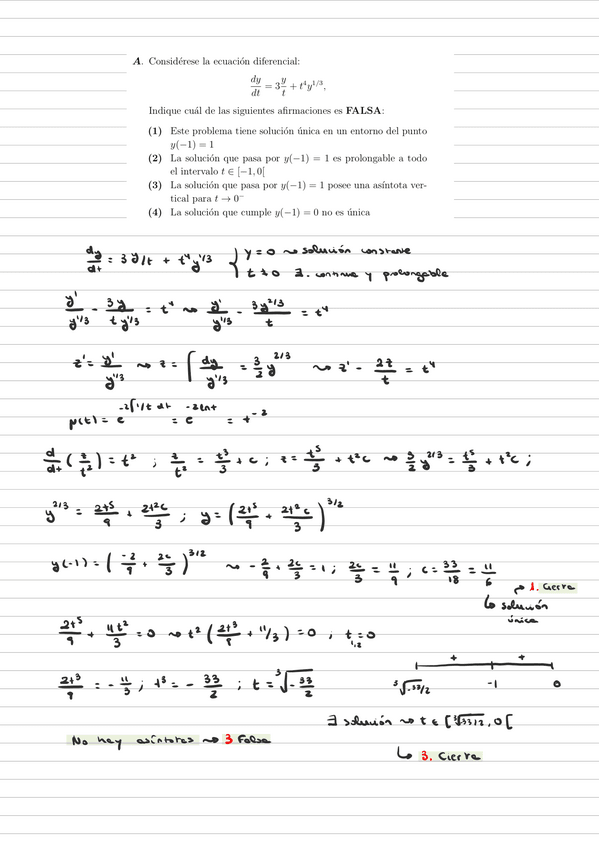 A. Considérese la ecuación diferencial:
dy/dt = 3 y/t + t⁴y^{1/3},
Indique cuál de las siguientes afirmaciones es FALSA:
(1) Este problema tiene solución única en un entorno del punto
y(−1) = 1
(2) La solución que pasa por y(−1) = 1 es prolongable a todo
el intervalo t ∈ [−1, 0[
(3) La solución que pasa por y(−1) = 1 posee una asíntota ver-
tical para t → 0⁻
(4) La solución que cumple y(−1) = 0 no es única
dy/dt = 3y/t + t⁴y^{1/3} { y = 0 ⇝ solución constante
t ≠ 0 ∃. continua y prolongable
y'/y^{1/3} − 3y/(t y^{1/3}) = t⁴ ⇝ y'/y^{1/3} − 3y^{2/3}/t = t⁴
z' = y'/y^{1/3} ⇝ z = ∫ dy/y^{1/3} = 3/2 y^{2/3} ⇝ z' − 2z/t = t⁴
μ(t) = e^{−2∫1/t dt} = e^{−2lnt} = t^{−2}
d/dt (z/t²) = t² ; z/t² = t³/3 + c ; z = t⁵/3 + t²c ⇝ 3/2 y^{2/3} = t⁵/3 + t²c ;
y^{2/3} = 2t⁵/9 + 2t²c/3 ; y = (2t⁵/9 + 2t²c/3)^{3/2}
y(−1) = (−2/9 + 2c/3)^{3/2} ⇝ −2/9 + 2c/3 = 1 ; 2c/3 = 11/9 ; c = 33/18 = 11/6
→ 1. Cierta
↳ solución
única
2t⁵/9 + 11t²/3 = 0 ⇝ t² (2t³/9 + 11/3) = 0 ; t₁,₂ = 0
2t³/9 = −11/3 ; t³ = −33/2 ; t = ∛−33/2
+ +
∛−33/2 −1 0
∃ solución ⇝ t ∈ [∛33/2, 0[
No hay asíntotas ⇝ 3 Falsa
↳ 3. Cierta